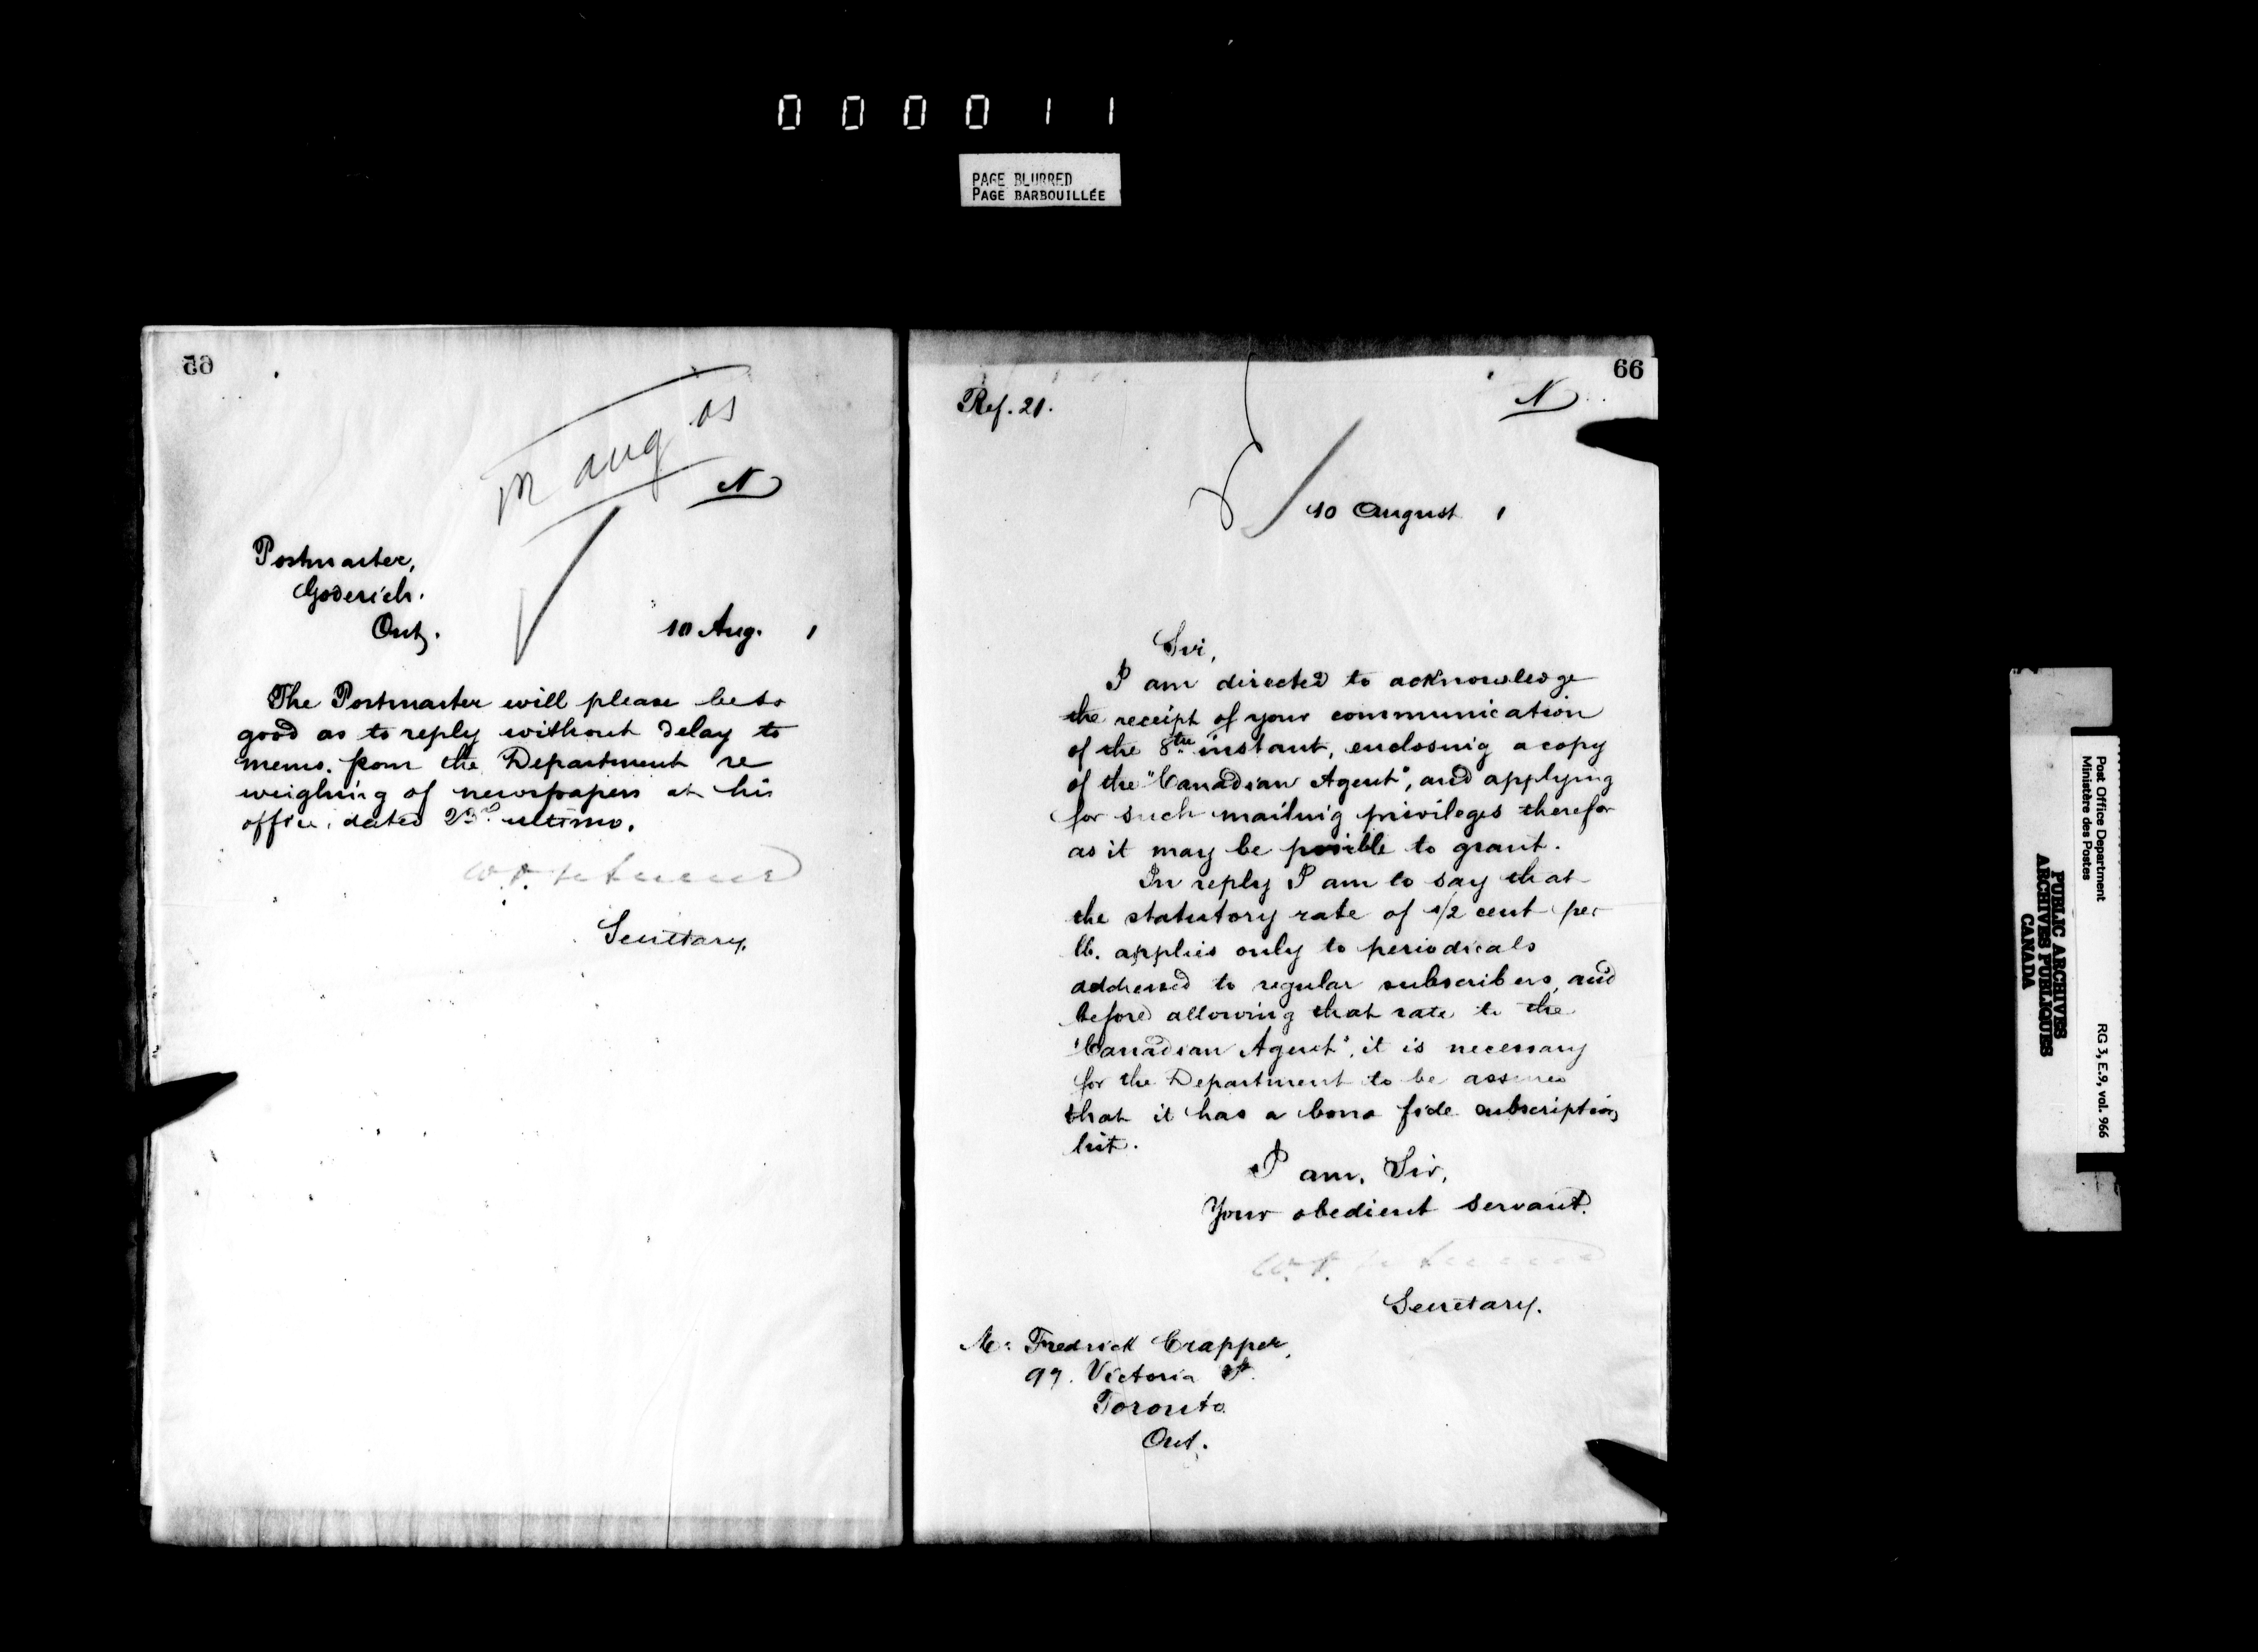 000011
PAGE BLURRED
PAGE BARBOUILLÉE
65
aug
N
Postmaster,
Goderich.
Ont.
10 Aug. 1
The Postmaster will please be so
good as to reply without delay to
memo. from the Department re
weighing of newspapers at his
office, dated 23rd ultimo.
Secretary.
66
Ref. 21.
N
10 August 1
Sir,
I am directed to acknowledge
the receipt of your communication
of the 8th instant, enclosing a copy
of the "Canadian Agent", and applying
for such mailing privileges therefor
as it may be possible to grant.
In reply I am to say that
the statutory rate of 1/2 cent per
lb. applies only to periodicals
addressed to regular subscribers, and
before allowing that rate to the
"Canadian Agent", it is necessary
for the Department to be assured
that it has a bona fide subscription
list.
I am, Sir,
Your obedient servant.
Secretary.
Mr Fredrick Crapper,
97. Victoria St.
Toronto
Ont.
Post Office Department
Ministère des Postes
RG 3, E.9, vol. 966
PUBLIC ARCHIVES
ARCHIVES PUBLIQUES
CANADA